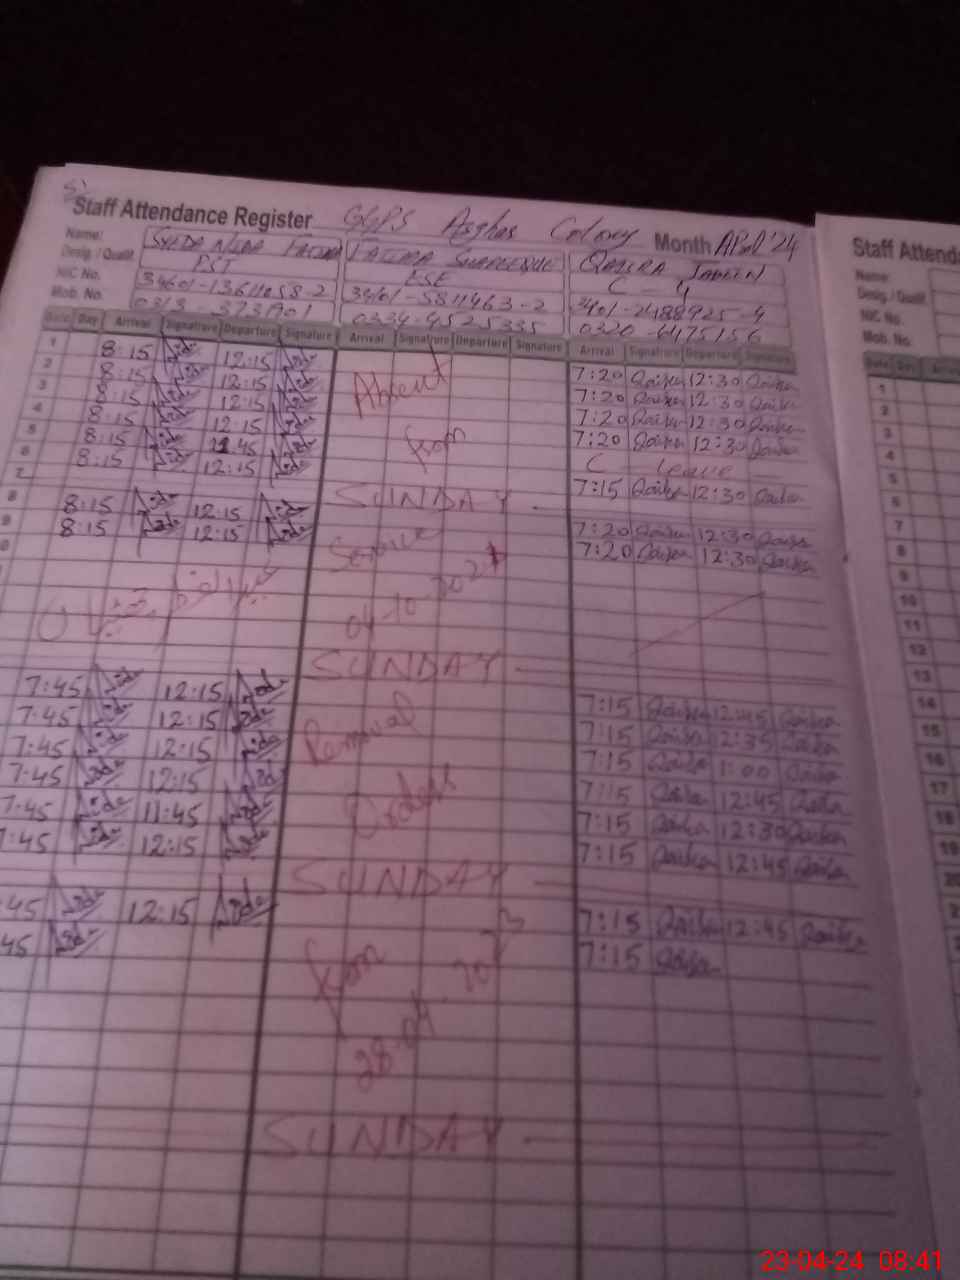 Staff Attendance Register GGPS Asghar Colony Month April'24
Staff Attenda
Name: SYEDA NIDA FATIMA FATIMA QAISRA JABEEN
Desig. / Qualif. PST ESE C - 4
NIC No. 34601-1361058-2 34601-5811463-2 34601-2488925-4
Mob. No. 0334-4525335 0320-6475156
Name:
Desig. / Qualif.
NIC No.
Mob. No.
Date Day Arrival Signature Departure Signature Arrival Signature Departure Signature Arrival Signature Departure Signature
1 8:15 Nida 12:15 Nida 7:20 Qaisra 12:30 Qaisra
2 8:15 Nida 12:15 Nida Absent 7:20 Qaisra 12:30 Qaisra
3 8:15 Nida 12:15 Nida 7:20 Qaisra 12:30 Qaisra
4 8:15 Nida 12:15 Nida from 7:20 Qaisra 12:30 Qaisra
5 8:15 Nida 11:45 Nida C - leave
6 8:15 Nida 12:15 Nida 7:15 Qaisra 12:30 Qaisra
7 SUNDAY
8 8:15 Nida 12:15 Nida 7:20 Qaisra 12:30 Qaisra
9 8:15 Nida 12:15 Nida Service 7:20 Qaisra 12:30 Qaisra
عید الفطر
04-10-2021
SUNDAY
7:45 Nida 12:15 Nida 7:15 Qaisra 12:45 Qaisra
7:45 Nida 12:15 Nida Removal 7:15 Qaisra 12:35 Qaisra
7:45 Nida 12:15 Nida 7:15 Qaisra 1:00 Qaisra
7:45 Nida 12:15 Nida Orders 7:15 Qaisra 12:45 Qaisra
7:45 Nida 11:45 Nida 7:15 Qaisra 12:30 Qaisra
7:45 Nida 12:15 Nida 7:15 Qaisra 12:45 Qaisra
SUNDAY
:45 Nida 12:15 Nida 7:15 Qaisra 12:45 Qaisra
45 Nida from 7:15 Qaisra
28-04-2023
SUNDAY
1
2
3
4
5
6
7
8
9
10
11
12
13
14
15
16
17
18
19
20
23-04-24 08:41